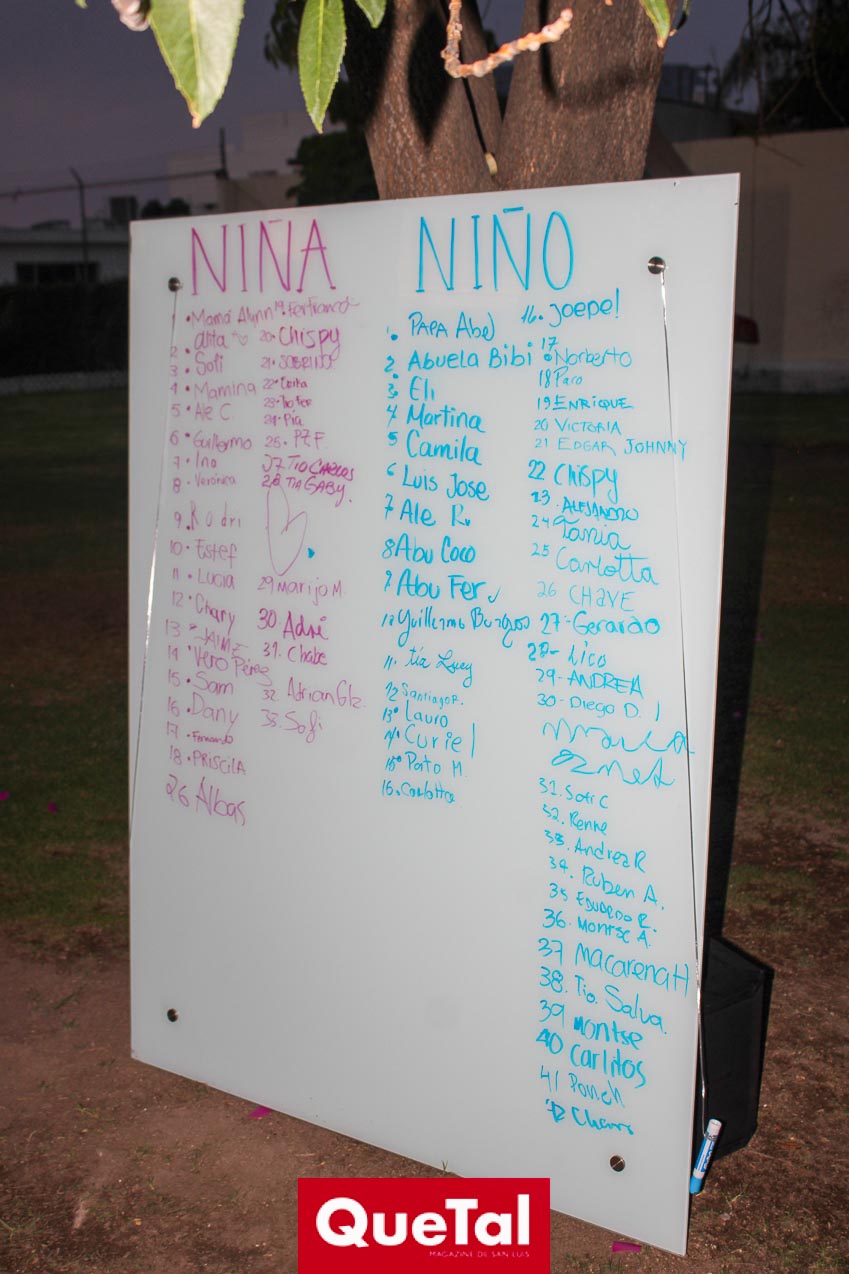 NIÑA
1. Mamá Alynn
2. alita
3. Sofi
4. Mamina
5. Ale C.
6. Guillermo
7. Ina
8. Verónica
9. Rodri
10. Estef
11. Lucia
12. Chary
13. JAIME
14. Vero Pérez
15. Sam
16. Dany
17. Fernando
18. PRISCILA
26 Albas
19. FerFranco
20. Chispy
21. SOBRINO
22.
23. Tio Fer
24. Pia
25. PZF.
27 TIO CARLOS
28 TIA GABY.
29 Marijo M.
30. Adri
31. Chabe
32. Adrian Glz.
33. Sofi
NIÑO
1. PAPA Abel
2. Abuela Bibi
3. Eli
4 Martina
5 Camila
6 Luis Jose
7 Ale R.
8 Abu Coco
9 Abu Fer
10 Guillermo Burgos
11. tía Lucy
12 Santiago R.
13° Lauro
14° Curiel
15° Pato M.
16. Carlotta
16. Joepe!
17 Norberto
18 Paco
19 ENRIQUE
20 VICTORIA
21 EDGAR JOHNNY
22 Chispy
23. ALEJANDRO
24 Tania
25 Carlotta
26 CHAVE
27- Gerardo
28- Lico
29- ANDREA
30- Diego D.
31. Sofi C
32. Renne
33. Andrea R
34. Ruben A.
35 EDUARDO R.
36. Montse A.
37 Macarena H
38. Tio. Salva.
39 Montse
40 Carlitos
41 Ponch
42
QueTal
MAGAZINE DE SAN LUIS